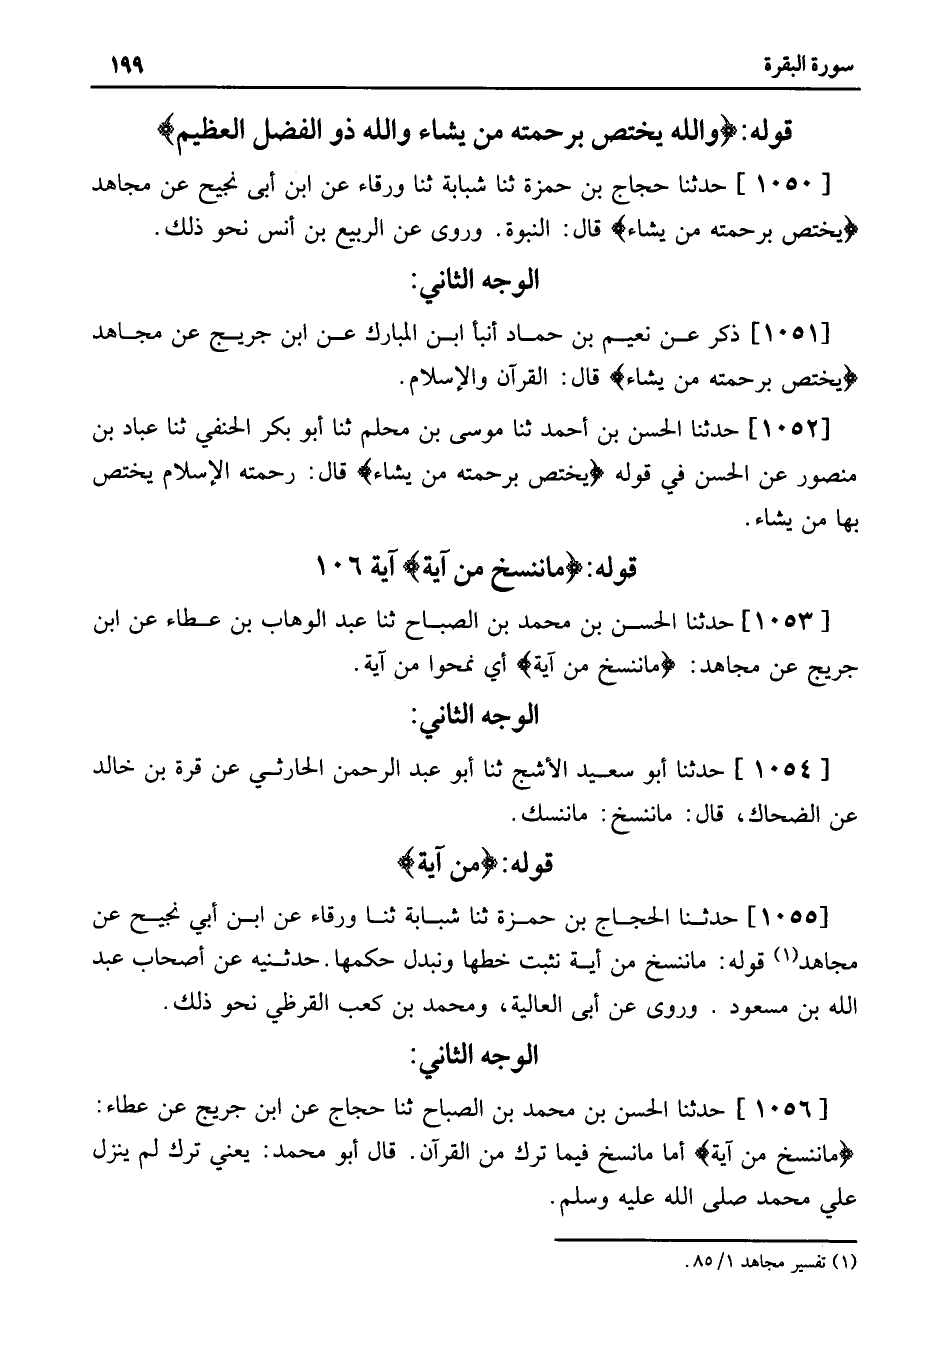 سورة البقرة ١٩٩
قوله: ﴿والله يختص برحمته من يشاء والله ذو الفضل العظيم﴾
[ ١٠٥٠ ] حدثنا حجاج بن حمزة ثنا شبابة ثنا ورقاء عن ابن أبى نجيح عن مجاهد
﴿يختص برحمته من يشاء﴾ قال: النبوة. وروى عن الربيع بن أنس نحو ذلك.
الوجه الثاني:
[١٠٥١] ذكر عن نعيم بن حماد أنبأ ابن المبارك عن ابن جريج عن مجاهد
﴿يختص برحمته من يشاء﴾ قال: القرآن والإسلام.
[١٠٥٢] حدثنا الحسن بن أحمد ثنا موسى بن محلم ثنا أبو بكر الحنفي ثنا عباد بن
منصور عن الحسن في قوله ﴿يختص برحمته من يشاء﴾ قال: رحمته الإسلام يختص
بها من يشاء.
قوله: ﴿ماننسخ من آية﴾ آية ١٠٦
[ ١٠٥٣] حدثنا الحسن بن محمد بن الصباح ثنا عبد الوهاب بن عطاء عن ابن
جريج عن مجاهد: ﴿ماننسخ من آية﴾ أي نمحوا من آية.
الوجه الثاني:
[ ١٠٥٤ ] حدثنا أبو سعيد الأشج ثنا أبو عبد الرحمن الحارثي عن قرة بن خالد
عن الضحاك، قال: ماننسخ: ماننسك.
قوله: ﴿من آية﴾
[١٠٥٥] حدثنا الحجاج بن حمزة ثنا شبابة ثنا ورقاء عن ابن أبي نجيح عن
مجاهد(١) قوله: ماننسخ من أية نثبت خطها ونبدل حكمها. حدثنيه عن أصحاب عبد
الله بن مسعود . وروى عن أبى العالية، ومحمد بن كعب القرظي نحو ذلك.
الوجه الثاني:
[ ١٠٥٦ ] حدثنا الحسن بن محمد بن الصباح ثنا حجاج عن ابن جريج عن عطاء:
﴿ماننسخ من آية﴾ أما مانسخ فيما ترك من القرآن. قال أبو محمد: يعني ترك لم ينزل
علي محمد صلى الله عليه وسلم.
(١) تفسير مجاهد ١/ ٨٥.